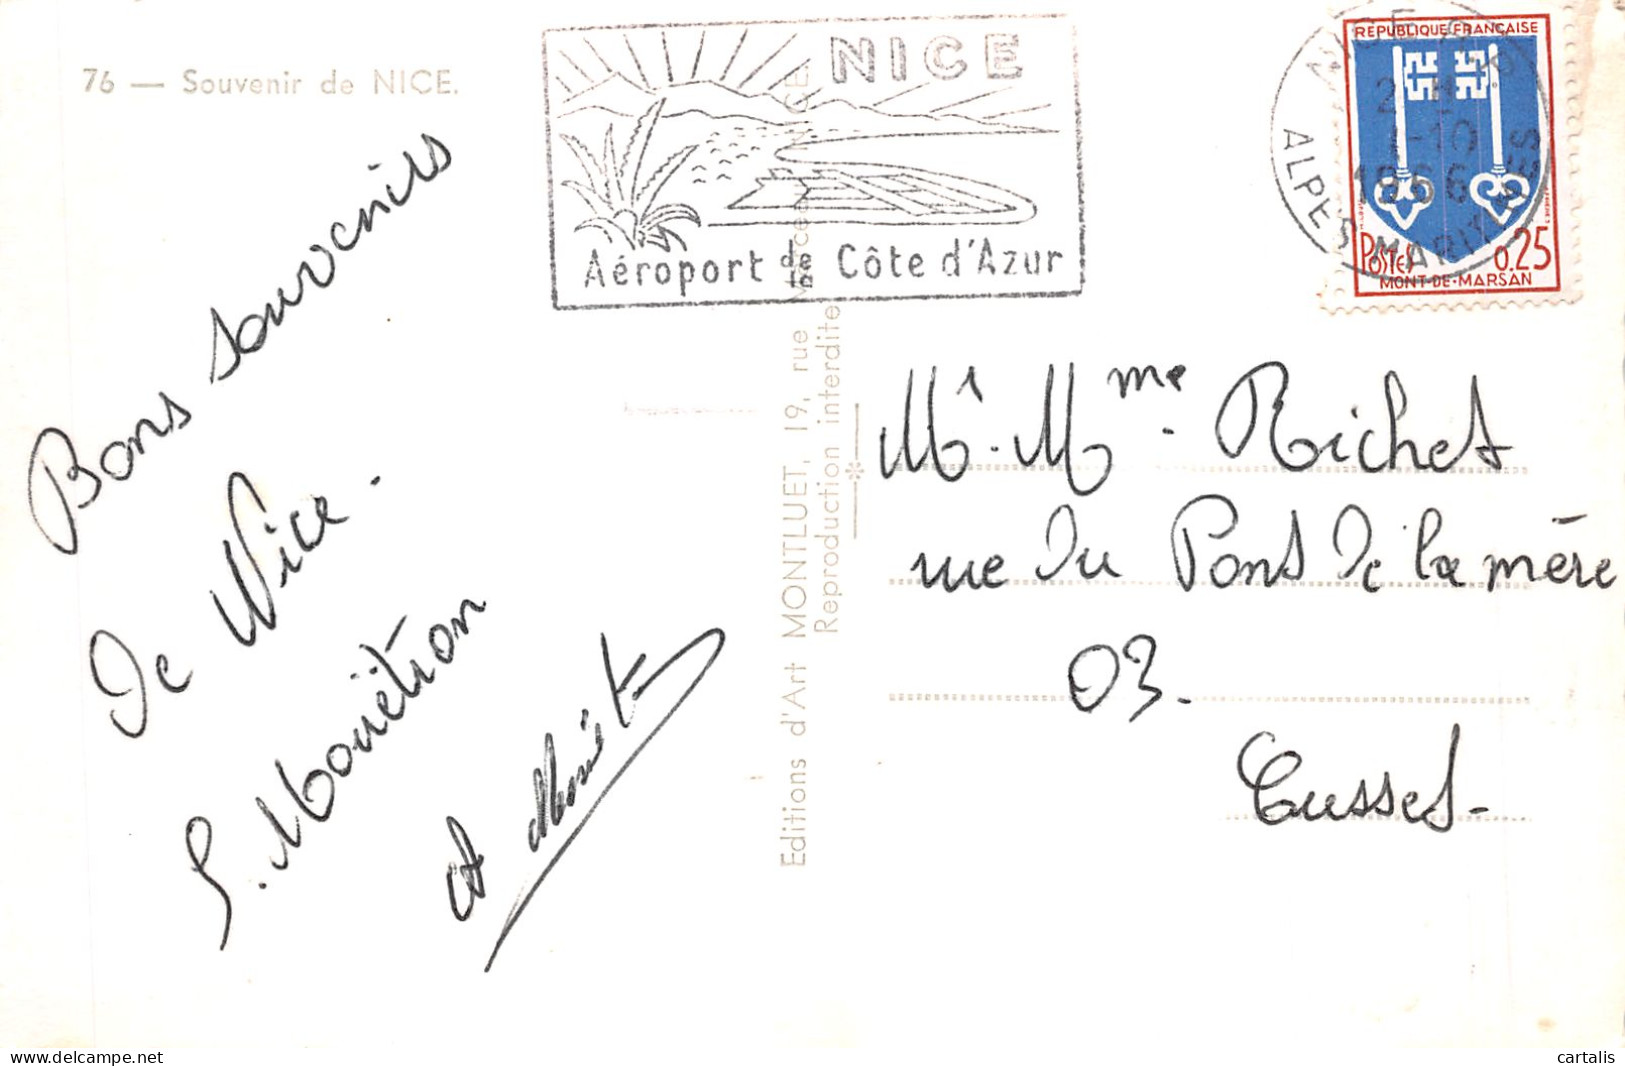 76 — Souvenir de NICE.
NICE
Aéroport de la Côte d'Azur
NICE
1-10
1966
ALPES-MARITIMES
REPUBLIQUE FRANÇAISE
POSTES 0,25
MONT-DE-MARSAN
Bons souvenirs
de Nice.
S. Mouëtron
et
Editions d'Art MONTLUET, 19, rue
Reproduction interdite
Mr. Mme. Richet
rue du Pont de la mère
03.
Cusset-
cartalis